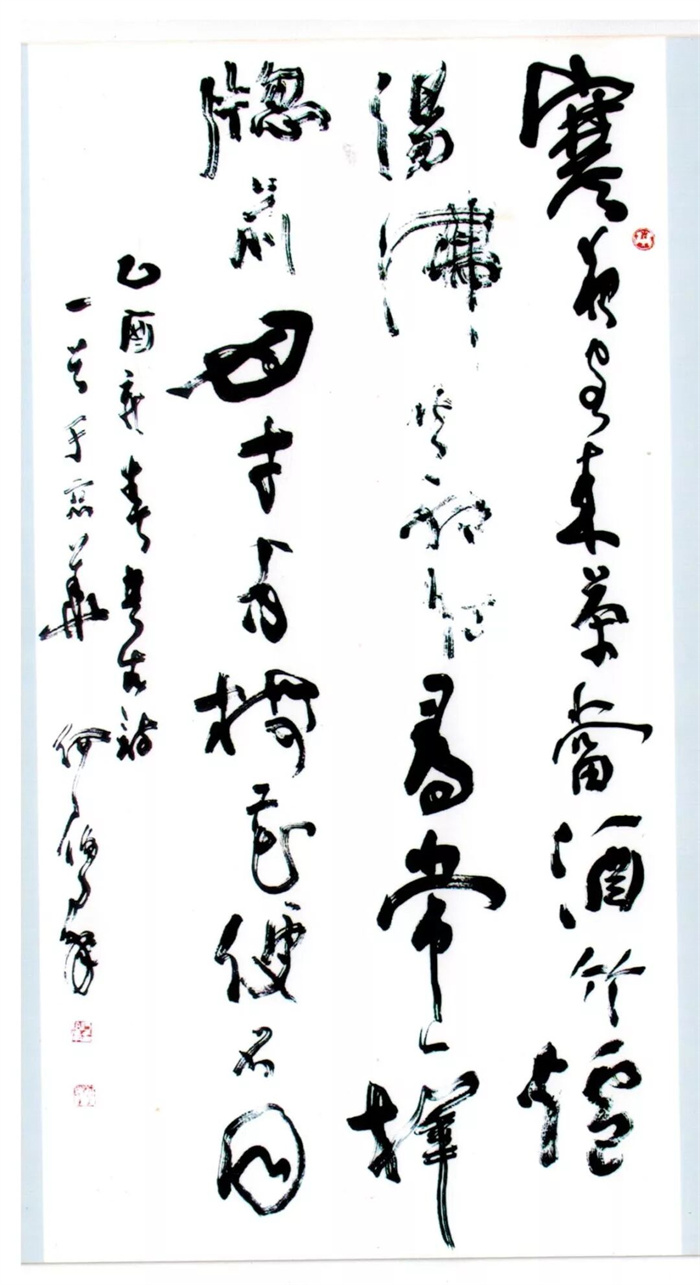 寒夜客來茶當酒竹爐
湯沸火初紅尋常一樣
牕前月才有梅花便不同
乙酉新春書古詩
于京華 何